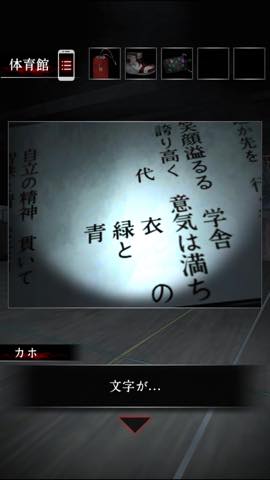 体育館
が先を 行く
学舎
意気は満ち
の
笑顔溢るる
誇り高く
衣
代
緑と
青
自立の精神 貫いて
カホ
文字が…